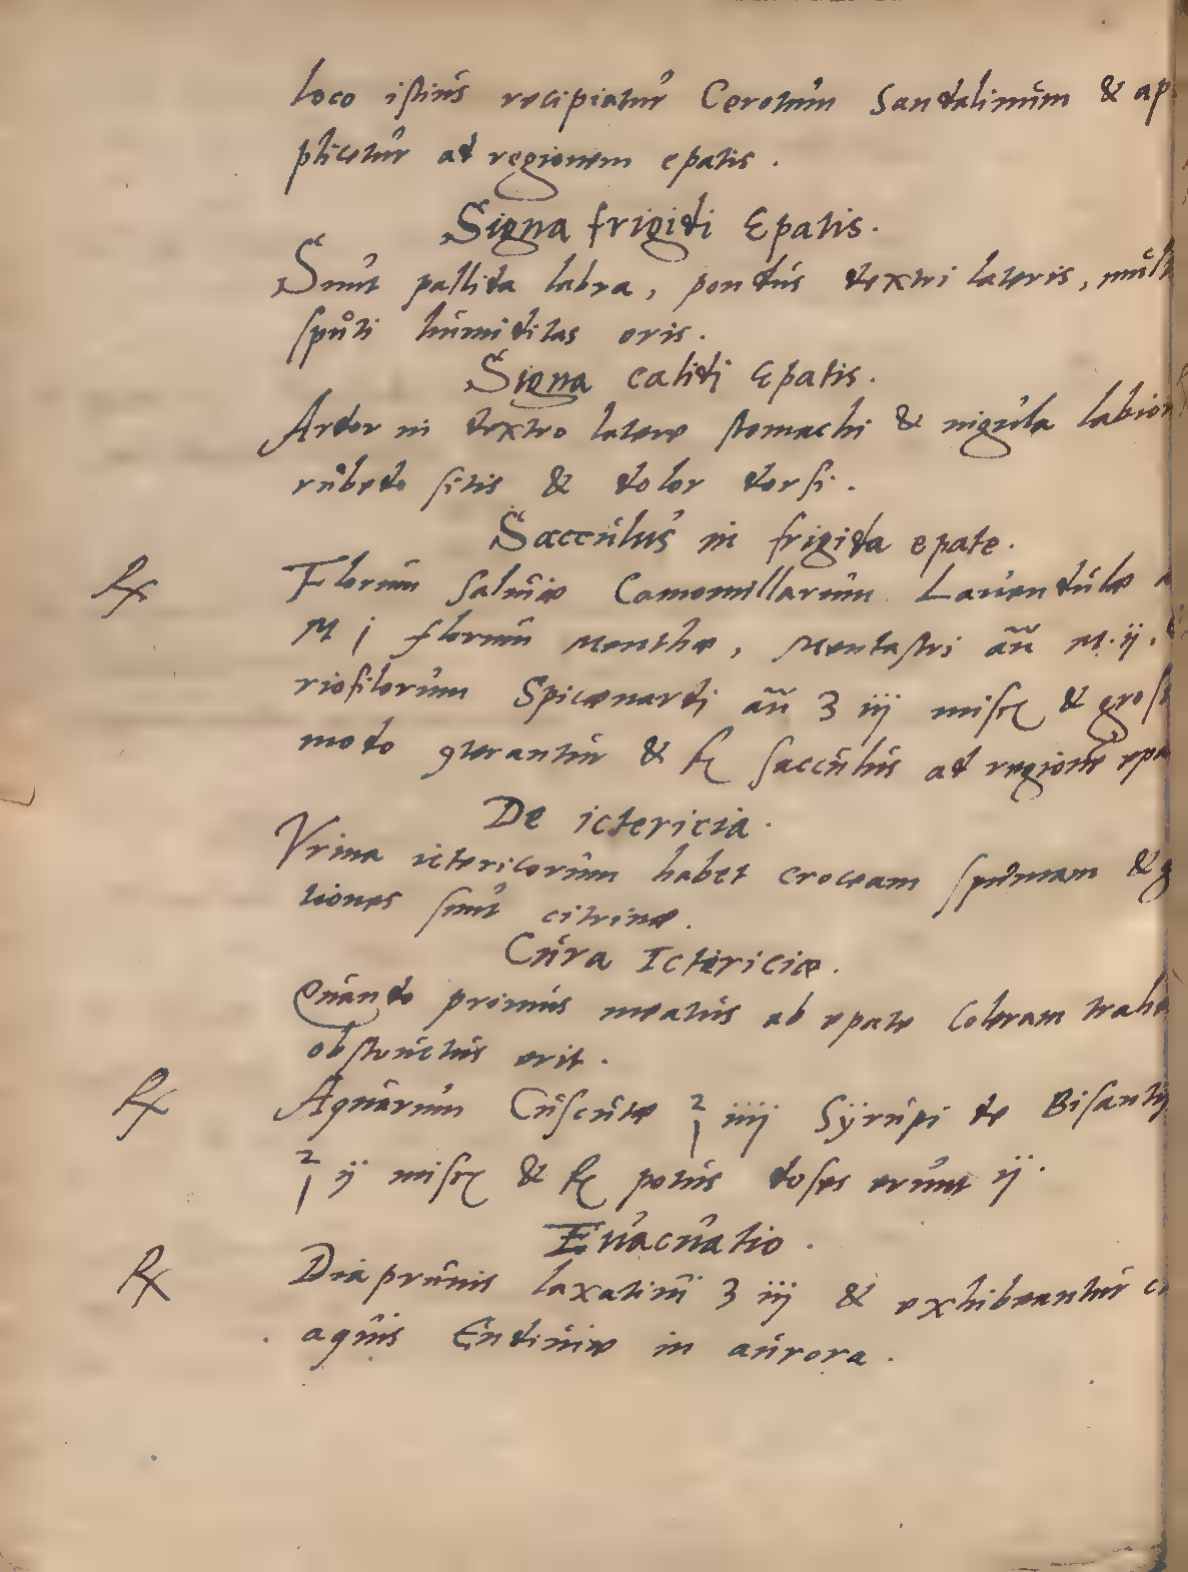 loco istius recipiatur Cerotum Sandalinum & ap
plicetur ad regionem epatis.
Signa frigidi Epatis.
Sunt pallida labra, pondus dextri lateris, mult
sputi humiditas oris.
Signa calidi Epatis.
Ardor in dextro latere stomachi & nigula labior
rubedo sitis & dolor dorsi.
Sacculus in frigida epate.
℞ Florum Saluiæ Camomillarum Lauendulæ a
M j florum Menthæ, Mentastri añ M. ij.
riofilorum Spicænardi añ ʒ iij misce & gross
modo ꝯterantur & f sacculus ad regionẽ epa
De ictericia.
Vrina ictericorum habet croceam spumam & g
tiones sunt citrinæ.
Cura Ictericiæ.
Quando primus meatus ab epate coleram trahe
obstructus erit.
℞ Aquarum Cuscutæ ℥ iiij Syrupi de Bisantij
℥ ij misce & f potus doses erunt ij.
Euacuatio.
℞ Diaprunis laxatiui ʒ iij & exhibeantur c
aquis Endiuiæ in aurora.